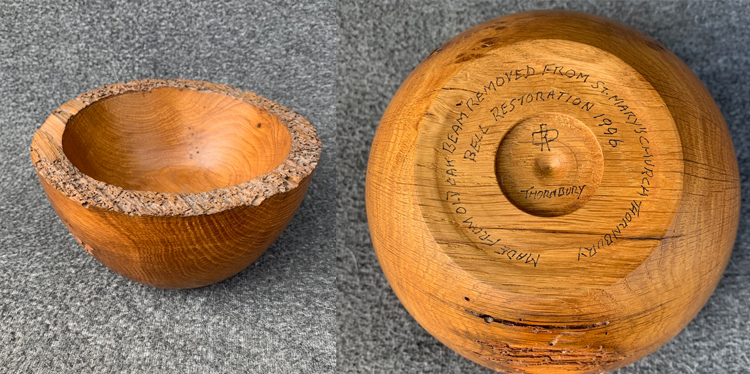 MADE FROM OLD OAK BEAM REMOVED FROM ST. MARY'S CHURCH THORNBURY
BELL RESTORATION 1996
THORNBURY